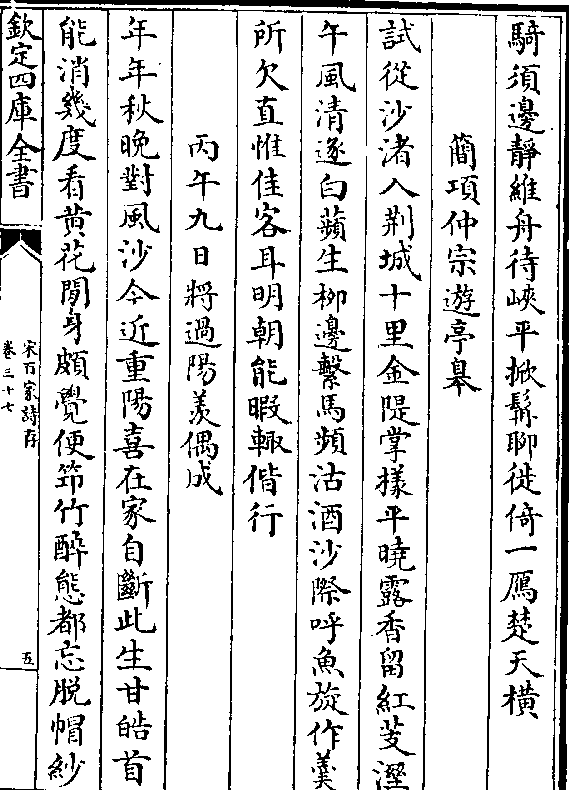 騎須邊靜維舟待峽平掀髯聊徙倚一鴈楚天橫
簡項仲宗遊亭臯
試從沙渚入荆城十里金隄掌樣平曉露香留紅芰溼
午風清逐白蘋生柳邊繫馬頻沽酒沙際呼魚旋作羮
所欠直惟佳客耳明朝能暇輙偕行
丙午九日將過陽羨偶成
年年秋晚對風沙今近重陽喜在家自斷此生甘皓首
能消幾度看黃花閒身頗覺便笻竹醉態都忘脫帽紗
欽定四庫全書
宋百家詩存
卷三十七
五